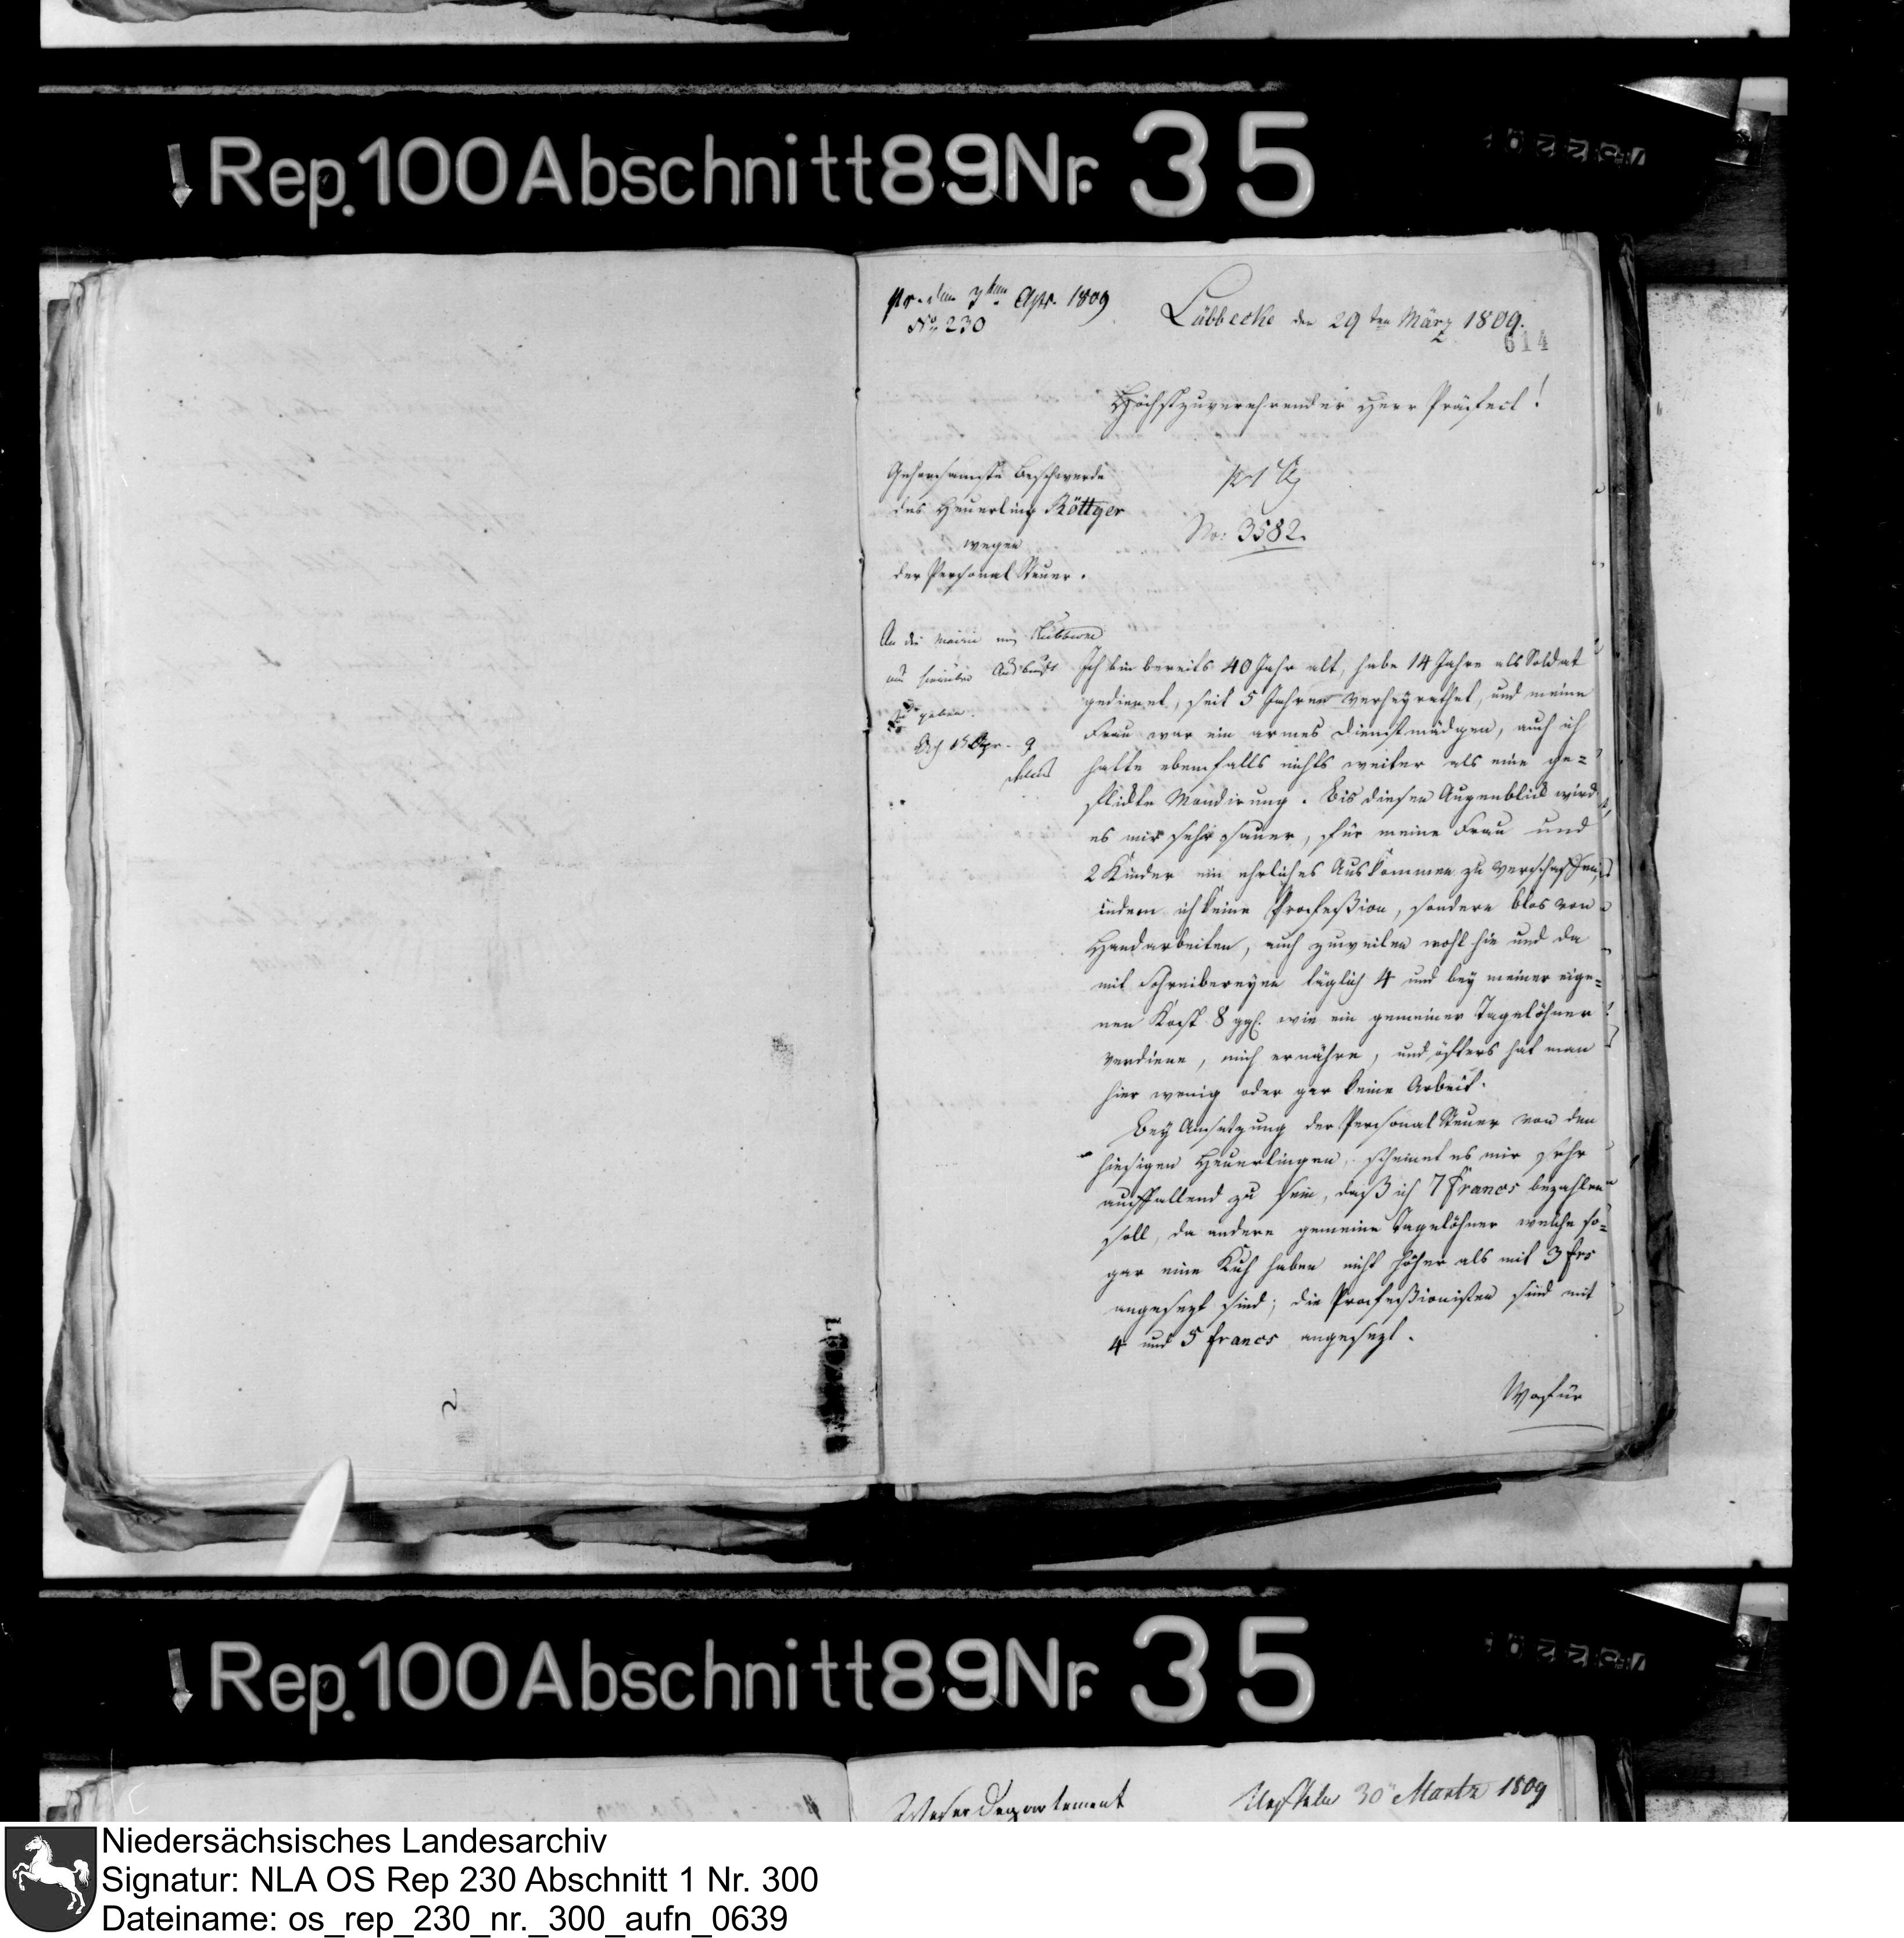 Rep. 100 Abschnitt 89 Nr. 35
pr. den 3ten Apr. 1809
No. 230
Lübbecke den 29ten März 1809.
614
Höchstzuverehrender Herr Präfect!
Gehorsamste Beschwerde
des Heuerling Röttger
wegen
der Personal Steuer.
No: 3582.
An die Mairie
um hierüber Auskunft
zu geben.
Ich bin bereits 40 Jahr alt, habe 14 Jahre als Soldat
gedienet, seit 5 Jahren verheyrathet, und meine
Frau war ein armes Dienstmädgen, auch ich
hatte ebenfalls nichts weiter als eine ge=
flickte Mondirung. Bis diesen Augenblick wird
es mir sehr sauer, für meine Frau und
2 Kinder ein ehrliches Auskommen zu verschaffen,
indem ich keine Profeßion, sondern blos von
Handarbeiten, auch zuweilen wohl hie und da
mit Schreibereyen täglich 4 und bey meiner eige=
nen Kost 8 ggl. wie ein gemeiner Tagelöhner
verdiene, mich ernähre, und öfters hat man
hier wenig oder gar keine Arbeit.
Bey Ansetzung der Personal Steuer von den
hiesigen Heuerlingen, scheinet es mir sehr
auffallend zu sein, daß ich 7 Francs bezahlen
soll, da andere gemeine Tagelöhner welche so=
gar eine Kuh haben nicht höher als mit 3 frs
angesezt sind; die Profeßionisten sind mit
4 und 5 francs angesezt.
Wofür
Rep. 100 Abschnitt 89 Nr. 35
Weser Departement
30 Martz 1809
Niedersächsisches Landesarchiv
Signatur: NLA OS Rep 230 Abschnitt 1 Nr. 300
Dateiname: os_rep_230_nr._300_aufn_0639